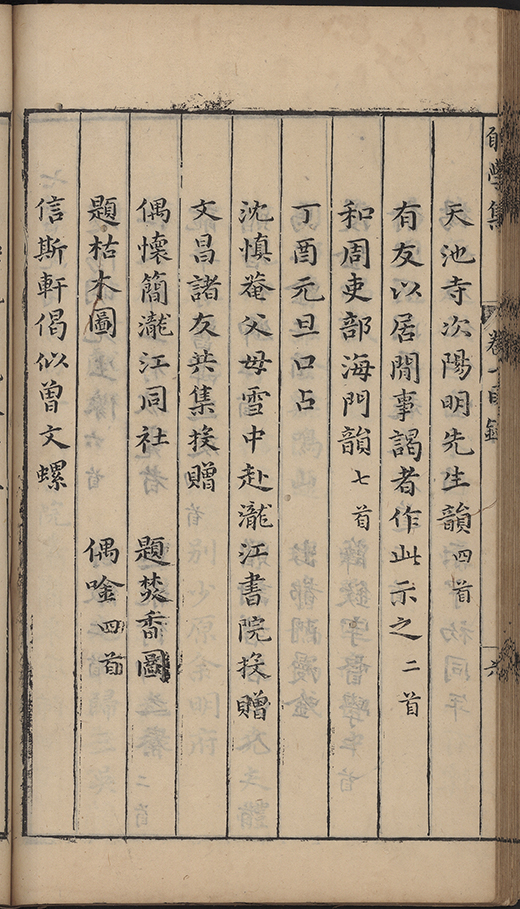 天池寺次陽明先生韻四首
有友以居閒事謁者作此示之二首
和周吏部海門韻七首
丁酉元旦口占
沈慎菴父母雪中赴瀧江書院投贈
文昌諸友共集投贈
偶懷簡瀧江同社 題焚香圖
題枯木圖 偶唫四首
信斯軒偈似曾文螺
學集 卷 目錄 六